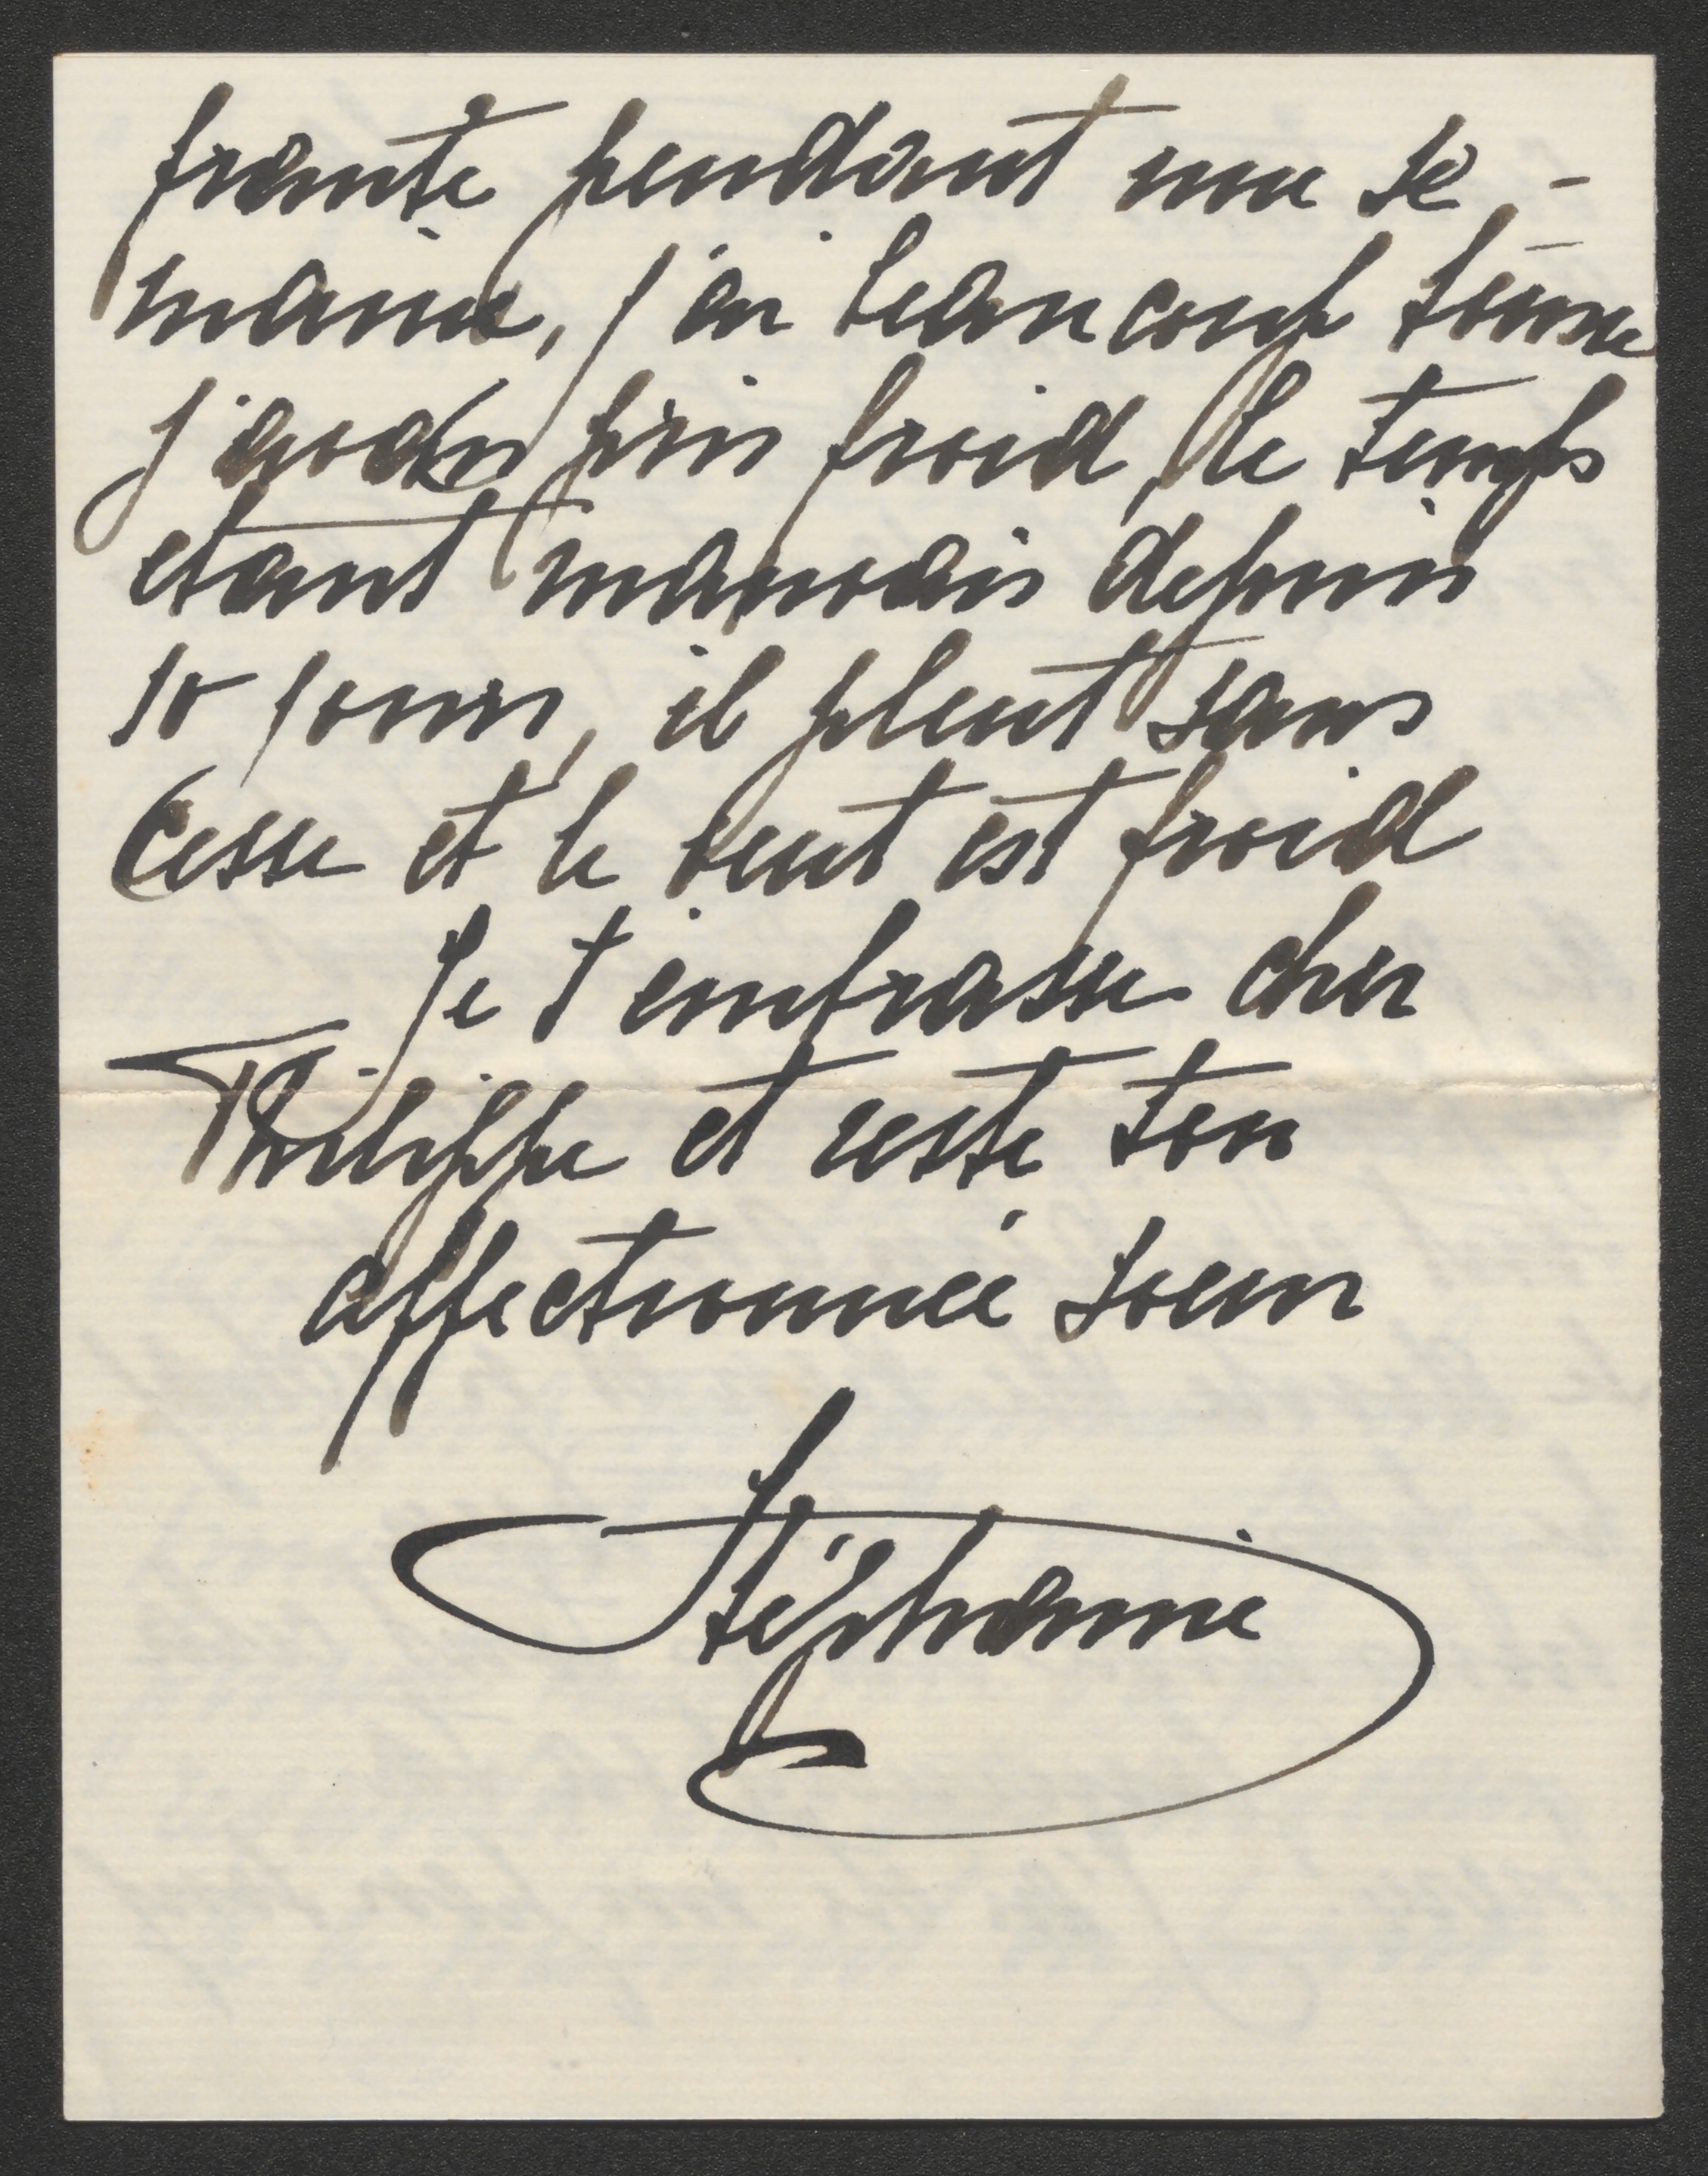 frante pendant une se-
maine, j'ai beaucoup toussé
j'avais pris froid, le temps
étant mauvais depuis
10 jours, il pleut sans
cesse et le vent est froid
Je t'embrasse cher
Philippe et reste ton
affectionnée soeur
Stéphanie